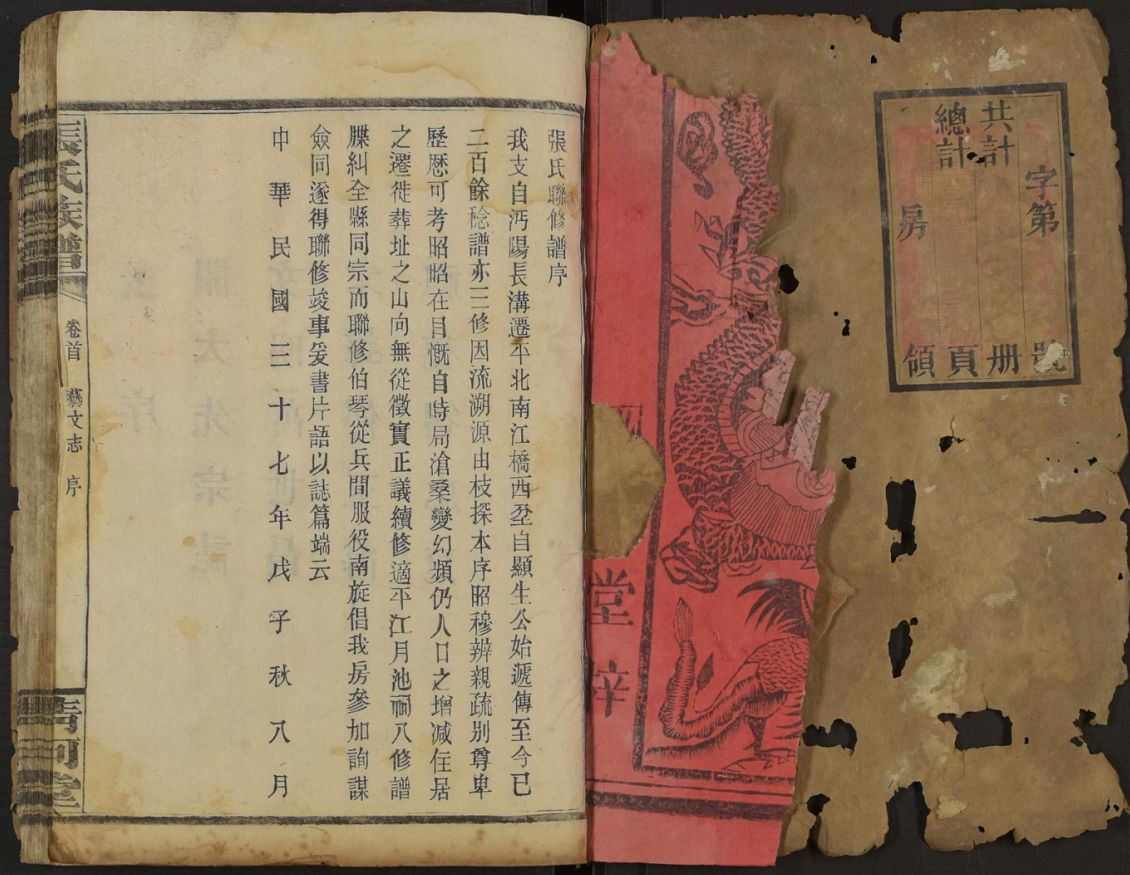 字第 號
共計 册
總計 頁
房 領
堂梓
張氏聯修譜序
我支自沔陽長溝遷平北南江橋西至自顯生公始遞傳至今已
二百餘稔譜亦三修因流溯源由枝探本序昭穆辨親疏别尊卑
歷歷可考昭昭在目慨自時局滄桑變幻頻仍人口之增減住居
之遷徙葬址之山向無從徵實正議續修適平江月池祠八修譜
牒糾全縣同宗而聯修伯琴從兵間服役南旋倡我房參加詢謀
僉同遂得聯修竣事爰書片語以誌篇端云
中華民國三十七年戊子秋八月
張氏族譜 卷首 藝文志 序 清河堂